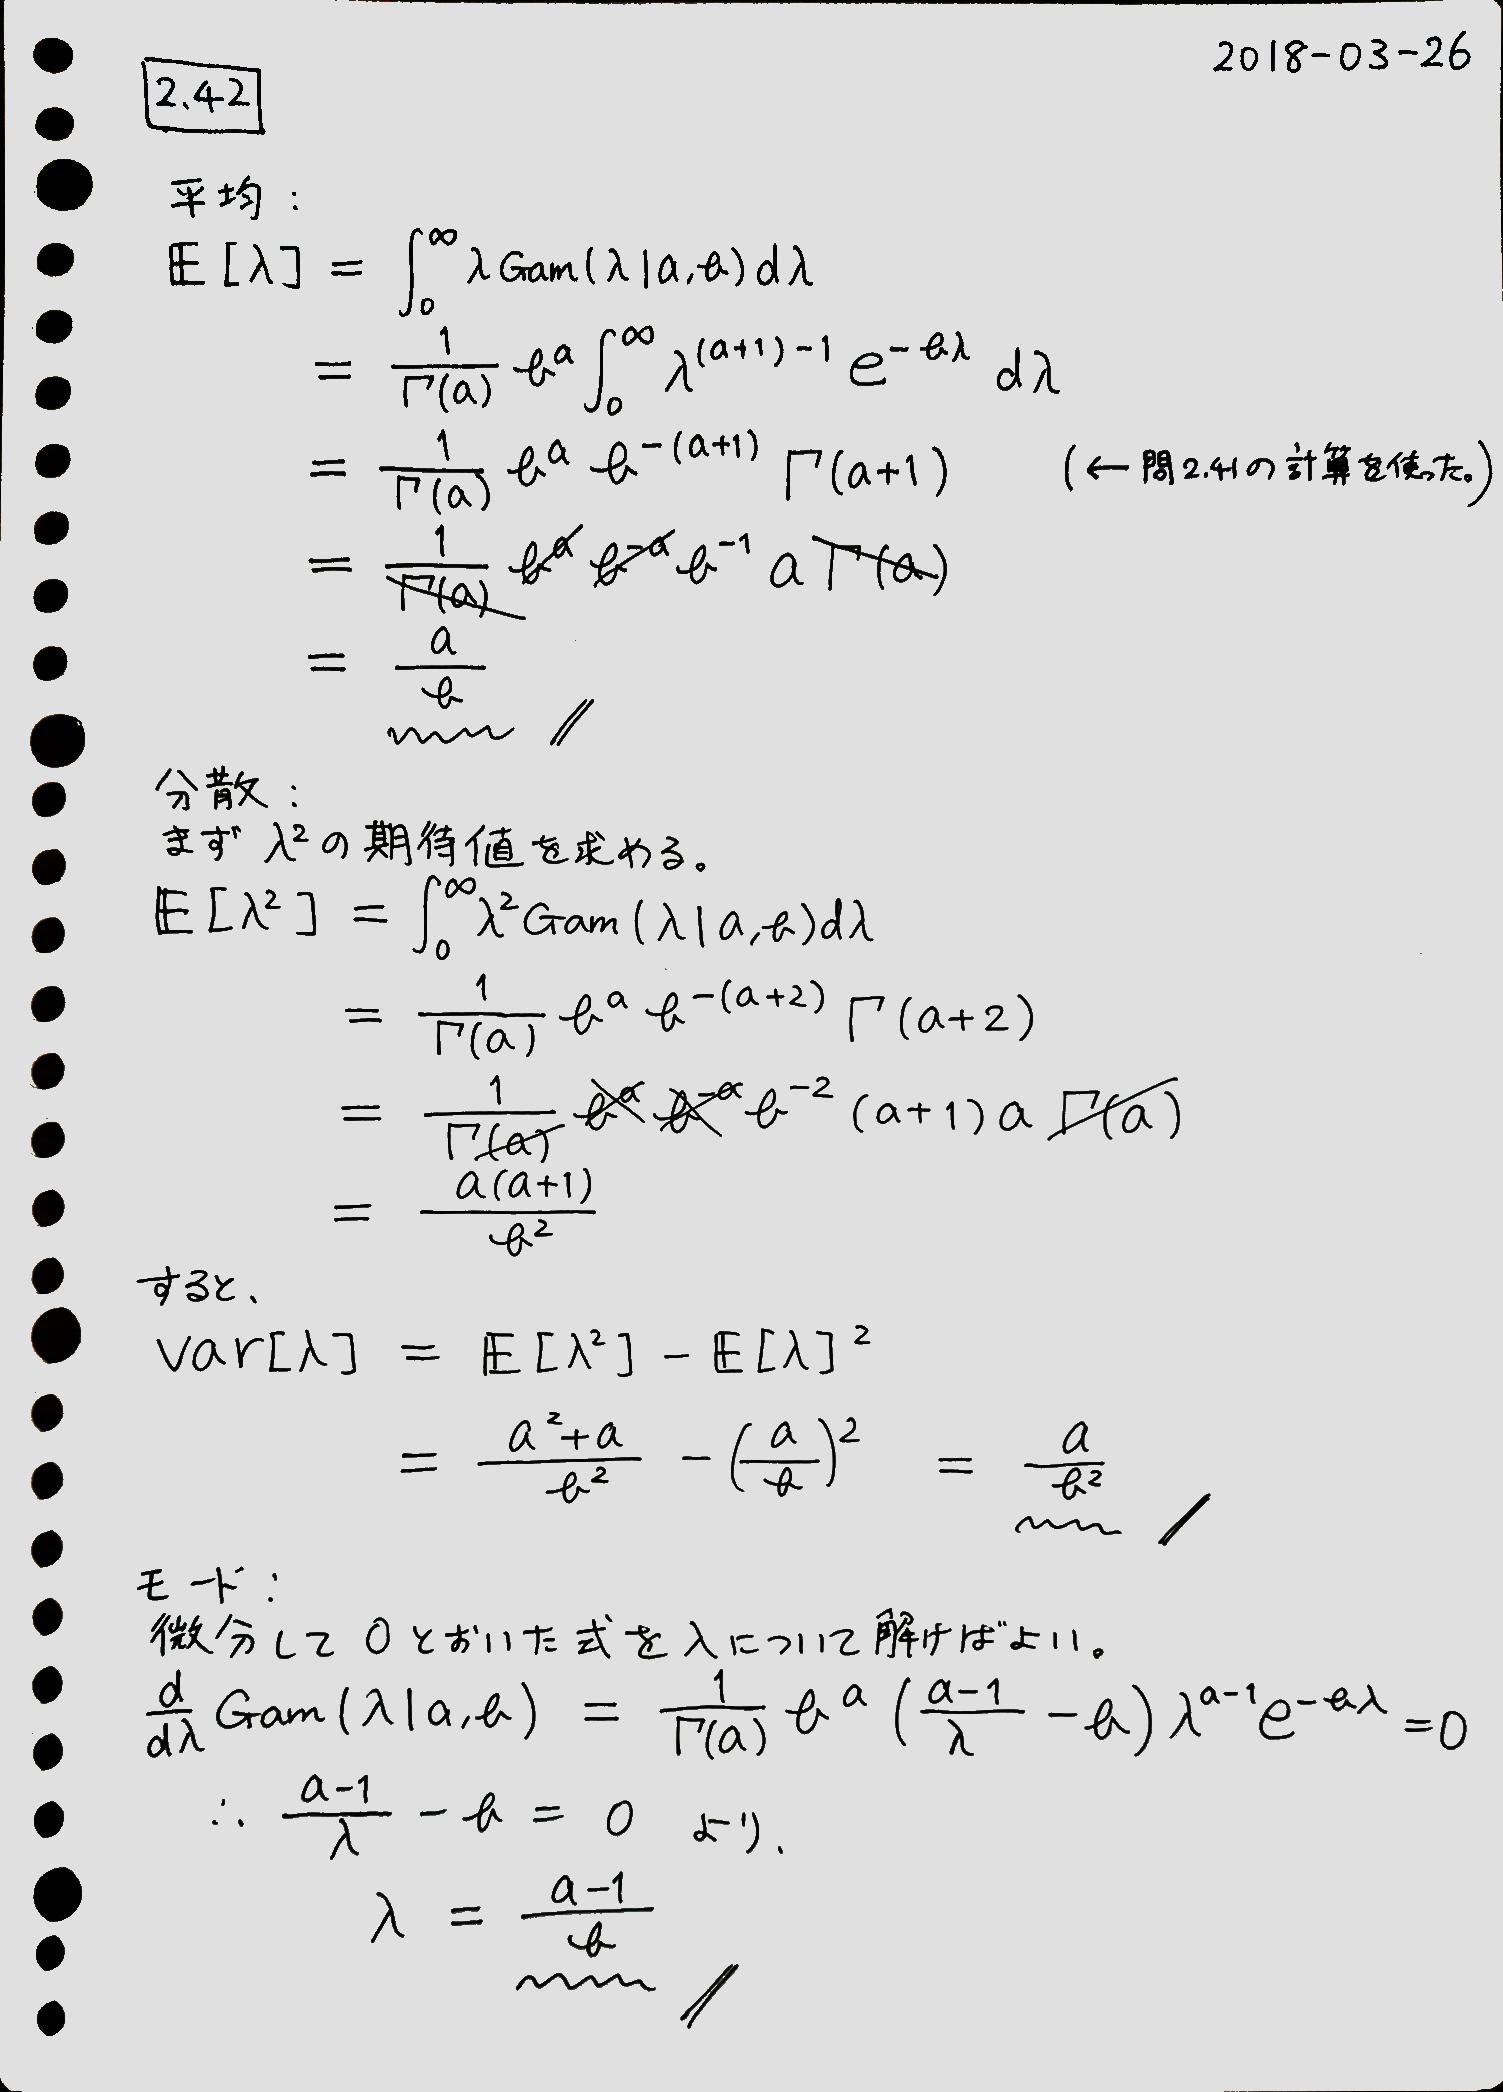 2018-03-26
2.42
平均:
𝔼[λ] = ∫₀^∞ λ Gam(λ|a,b) dλ
= 1/Γ(a) b^a ∫₀^∞ λ^{(a+1)-1} e^{-bλ} dλ
= 1/Γ(a) b^a b^{-(a+1)} Γ(a+1) (← 問2.41の計算を使った。)
= 1/Γ(a) b^a b^{-a} b^{-1} a Γ(a)
= a/b //
分散:
まず λ²の期待値を求める。
𝔼[λ²] = ∫₀^∞ λ² Gam(λ|a,b)dλ
= 1/Γ(a) b^a b^{-(a+2)} Γ(a+2)
= 1/Γ(a) b^a b^{-a} b^{-2} (a+1) a Γ(a)
= a(a+1)/b²
すると、
var[λ] = 𝔼[λ²] - 𝔼[λ]²
= (a²+a)/b² - (a/b)² = a/b² /
モード:
微分して0とおいた式をλについて解けばよい。
d/dλ Gam(λ|a,b) = 1/Γ(a) b^a ((a-1)/λ - b) λ^{a-1} e^{-bλ} = 0
∴ (a-1)/λ - b = 0 より、
λ = (a-1)/b //